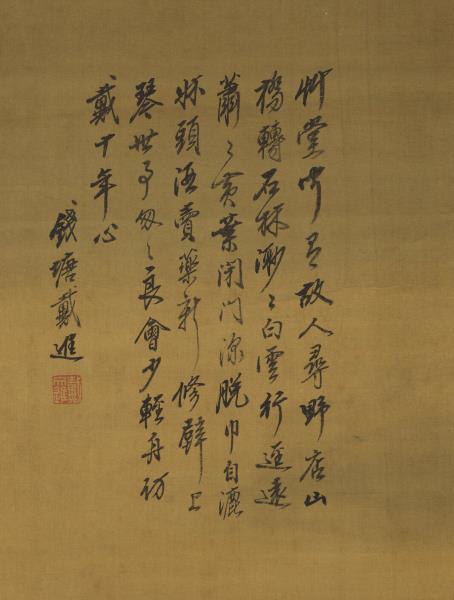 艸堂時有故人尋野店山
橋轉石林渺々白雲行逕遠
蕭々黃葉閉門深脫巾自漉
牀頭酒賣藥新修壁上
琴世事匆々良會少輕舟訪
戴十年心
錢塘戴進